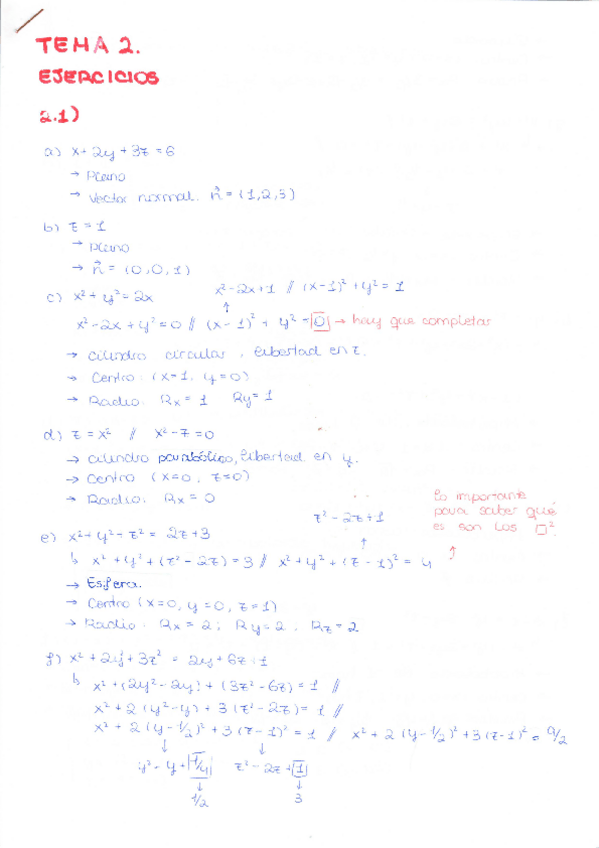 TEMA 2.
EJERCICIOS
2.1)
a) x + 2y + 3z = 6
→ Plano
→ Vector normal. n⃗ = (1,2,3)
b) z = 1
→ Plano
→ n⃗ = (0,0,1)
c) x² + y² = 2x
x² - 2x + 1 // (x-1)² + y² = 1
x² - 2x + y² = 0 // (x-1)² + y² = 0 → hay que completar
→ Cilindro circular, libertad en z.
→ Centro: (x=1, y=0)
→ Radio: Rx = 1 Ry = 1
d) z = x² // x² - z = 0
→ Cilindro parabólico, libertad en y.
→ Centro (x=0, z=0)
→ Radio: Rx = 0
Lo importante
para saber qué
es son los □²
↑
z² - 2z + 1
↑
e) x² + y² + z² = 2z + 3
↳ x² + y² + (z² - 2z) = 3 // x² + y² + (z-1)² = 4
→ Esfera.
→ Centro (x=0, y=0, z=1)
→ Radio: Rx = 2; Ry = 2, Rz = 2
f) x² + 2y² + 3z² = 2y + 6z + 1
↳ x² + (2y² - 2y) + (3z² - 6z) = 1 //
x² + 2(y² - y) + 3(z² - 2z) = 1 //
x² + 2(y - 1/2)² + 3(z-1)² = 1 // x² + 2(y - 1/2)² + 3(z-1)² = 9/2
↓ ↓
y² - y + 1/4 z² - 2z + 1
↓ ↓
1/2 3